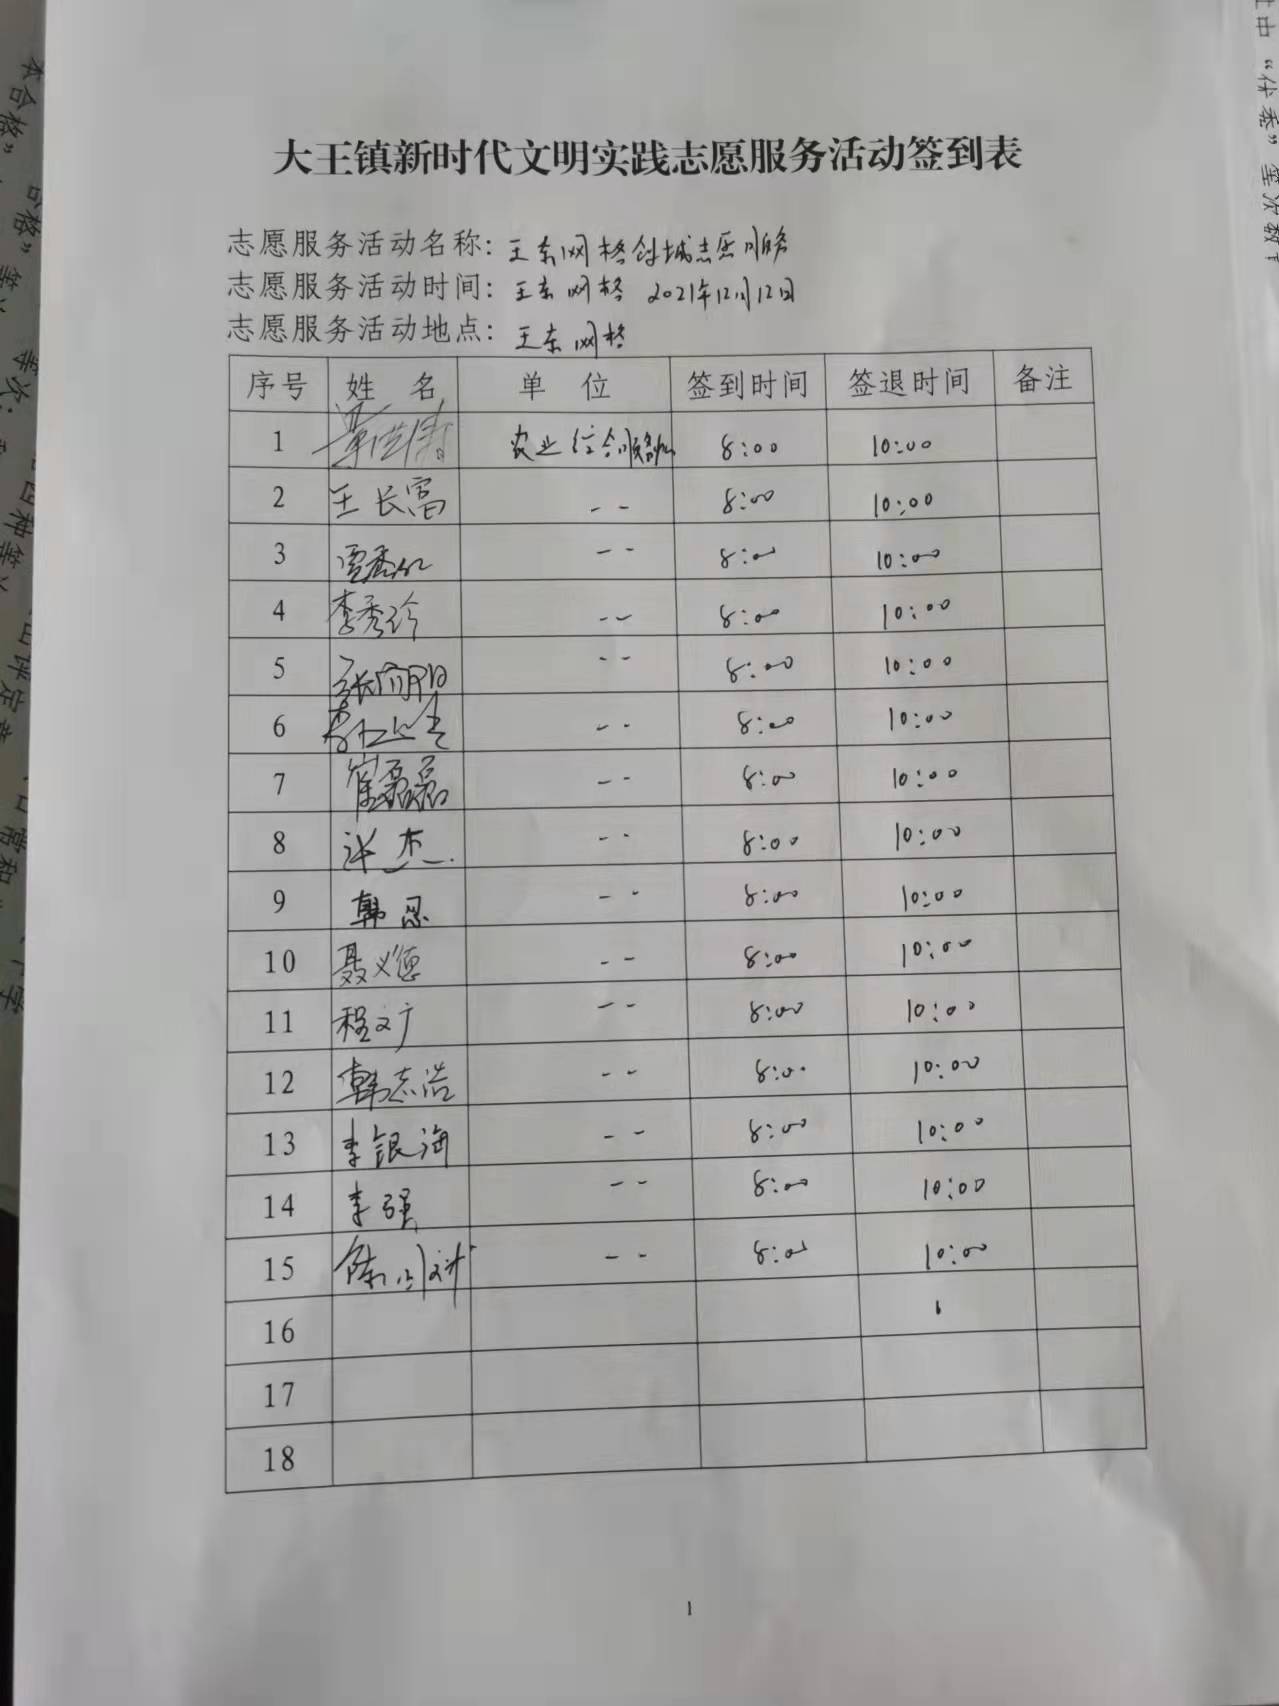 大王镇新时代文明实践志愿服务活动签到表
志愿服务活动名称：王东网格创城志愿服务
志愿服务活动时间：王东网格 2021年12月12日
志愿服务活动地点：王东网格
序号 姓名 单位 签到时间 签退时间 备注
1 农业综合服务 8:00 10:00
2 王长富 -- 8:00 10:00
3 -- 8:00 10:00
4 李秀玲 -- 8:00 10:00
5 张向阳 -- 8:00 10:00
6 -- 8:00 10:00
7 崔磊磊 -- 8:00 10:00
8 张杰 -- 8:00 10:00
9 韩恩 -- 8:00 10:00
10 聂义德 -- 8:00 10:00
11 程文广 -- 8:00 10:00
12 韩志浩 -- 8:00 10:00
13 李银海 -- 8:00 10:00
14 李强 -- 8:00 10:00
15 -- 8:00 10:00
16
17
18
1